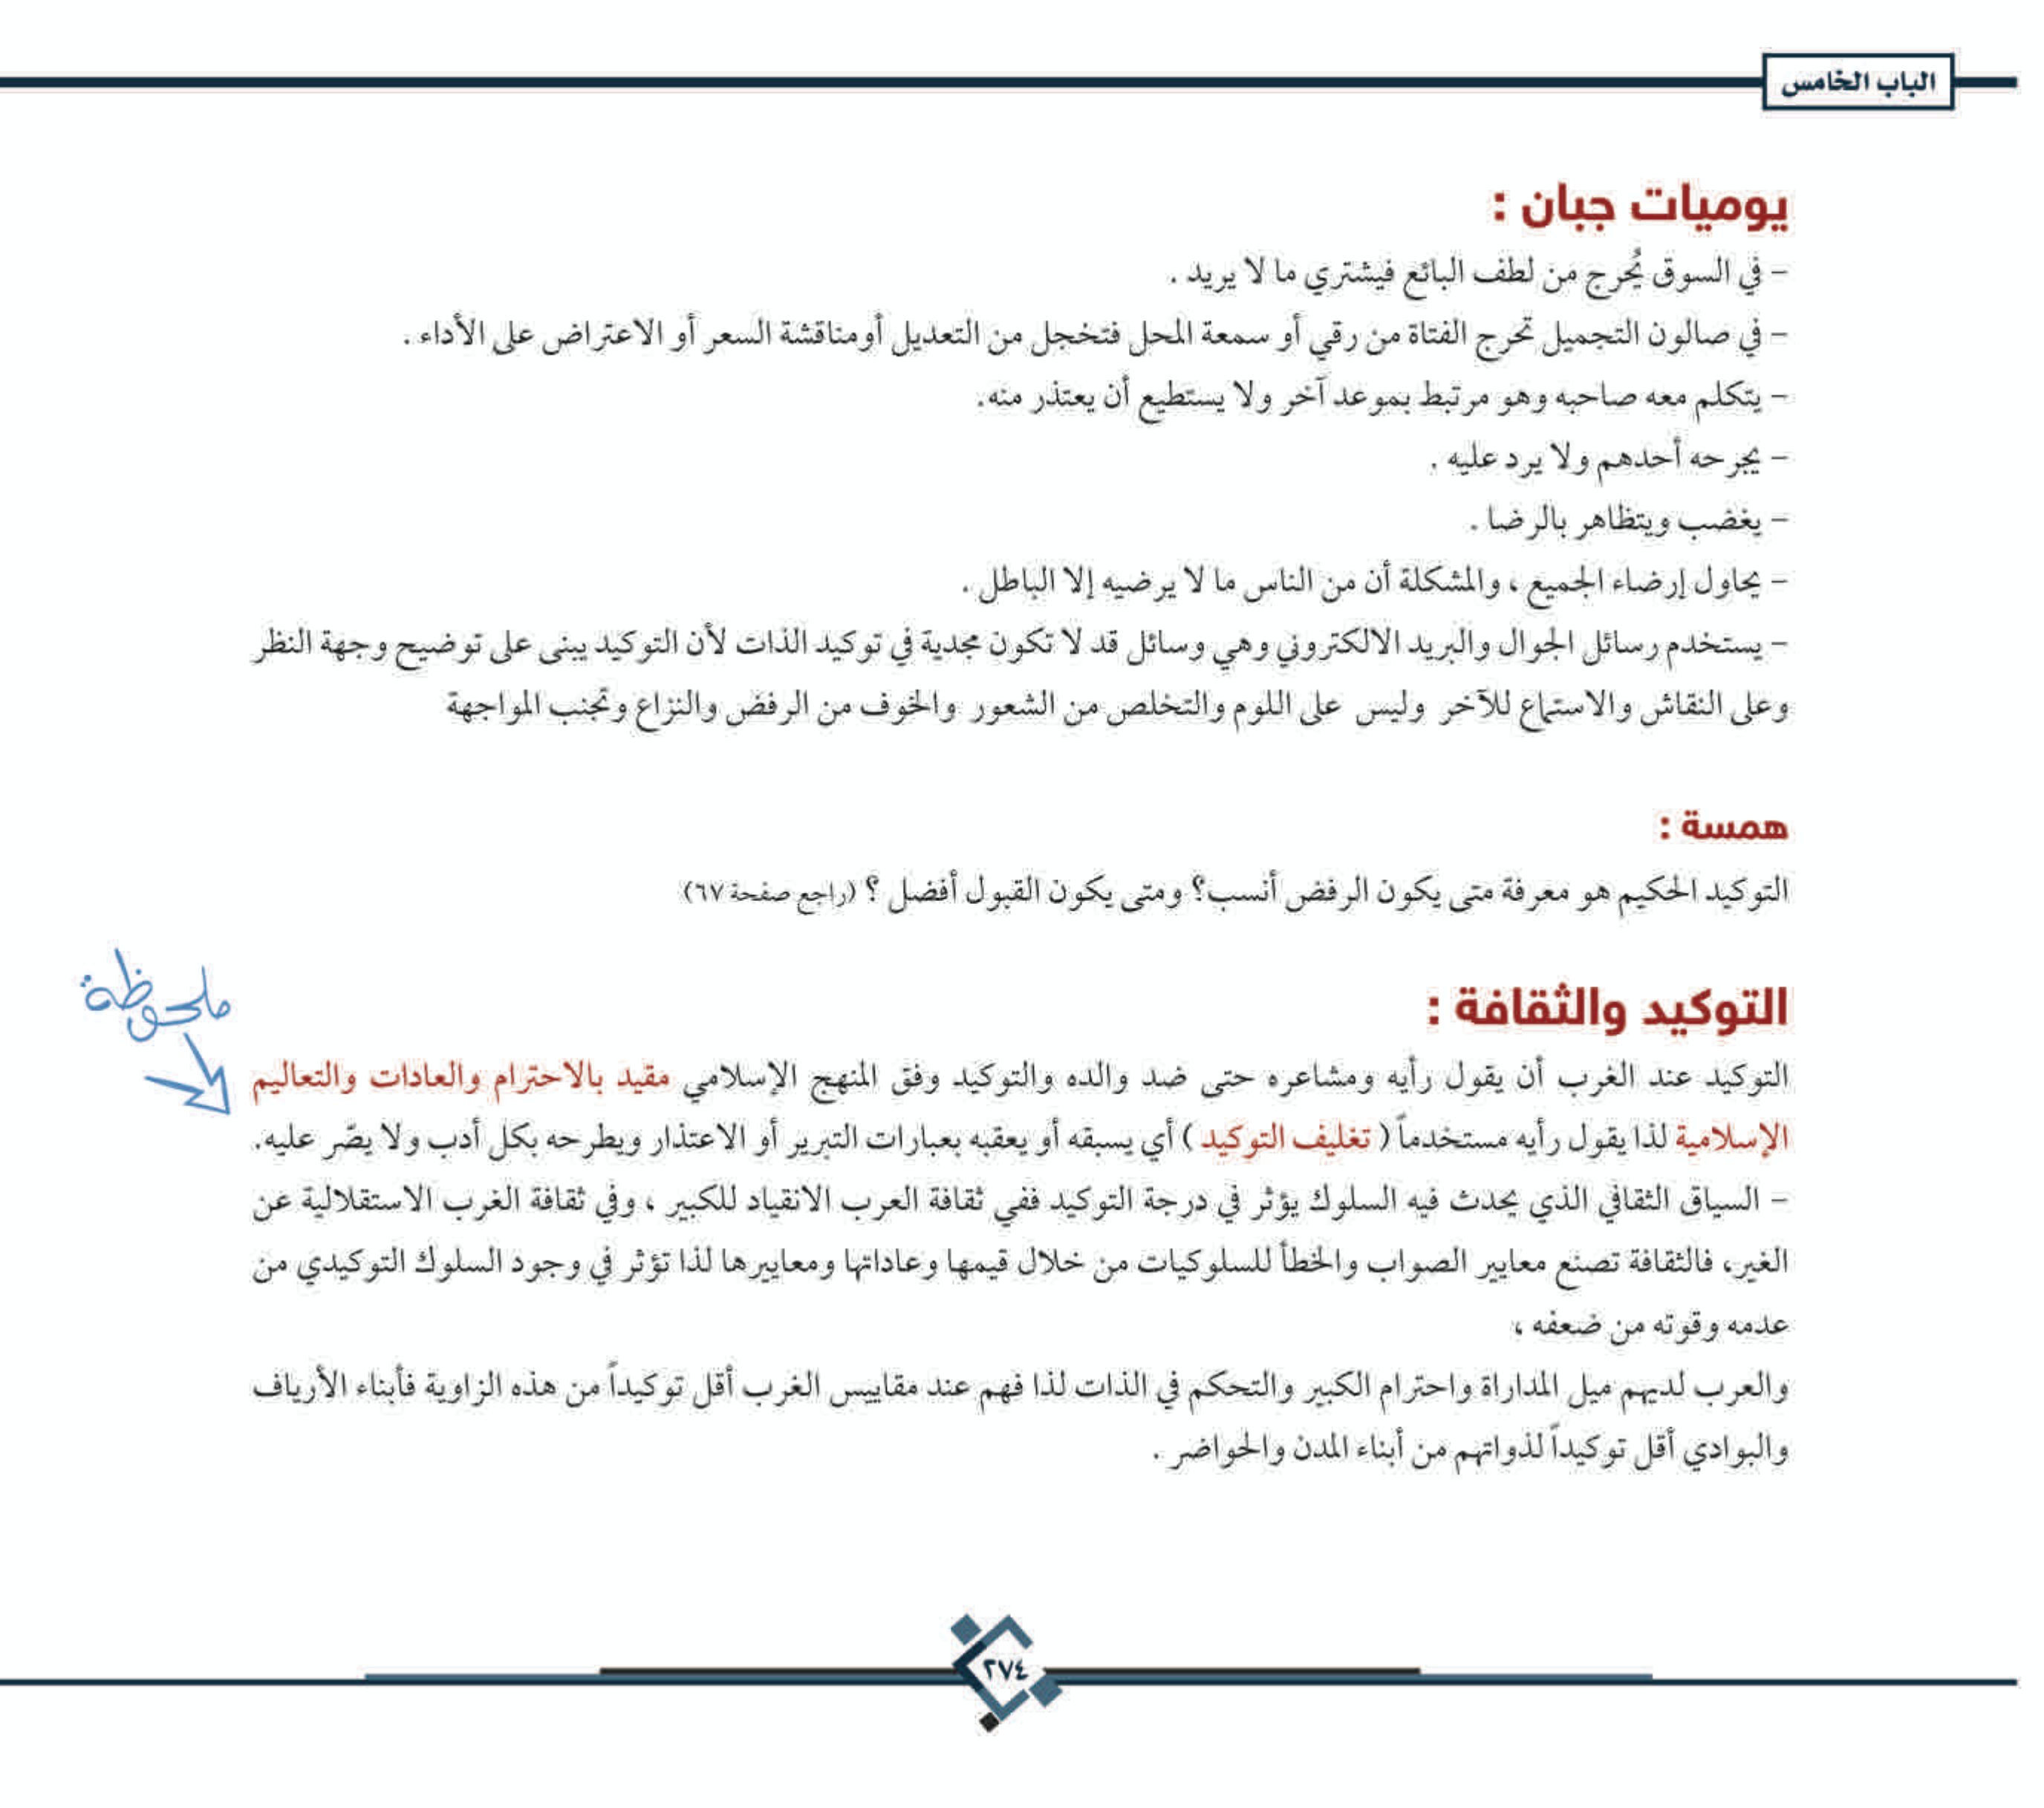 الباب الخامس
يوميات جبان :
– في السوق يُحرج من لطف البائع فيشتري ما لا يريد .
– في صالون التجميل تحرج الفتاة من رقي أو سمعة المحل فتخجل من التعديل أومناقشة السعر أو الاعتراض على الأداء .
– يتكلم معه صاحبه وهو مرتبط بموعد آخر ولا يستطيع أن يعتذر منه.
– يجرحه أحدهم ولا يرد عليه .
– يغضب ويتظاهر بالرضا .
– يحاول إرضاء الجميع ، والمشكلة أن من الناس ما لا يرضيه إلا الباطل .
– يستخدم رسائل الجوال والبريد الالكتروني وهي وسائل قد لا تكون مجدية في توكيد الذات لأن التوكيد يبنى على توضيح وجهة النظر
وعلى النقاش والاستماع للآخر وليس على اللوم والتخلص من الشعور والخوف من الرفض والنزاع وتجنب المواجهة
همسة :
التوكيد الحكيم هو معرفة متى يكون الرفض أنسب؟ ومتى يكون القبول أفضل ؟ (راجع صفحة ٦٧)
ملحوظة
التوكيد والثقافة :
التوكيد عند الغرب أن يقول رأيه ومشاعره حتى ضد والده والتوكيد وفق المنهج الإسلامي مقيد بالاحترام والعادات والتعاليم
الإسلامية لذا يقول رأيه مستخدماً ( تغليف التوكيد ) أي يسبقه أو يعقبه بعبارات التبرير أو الاعتذار ويطرحه بكل أدب ولا يصّر عليه.
– السياق الثقافي الذي يحدث فيه السلوك يؤثر في درجة التوكيد ففي ثقافة العرب الانقياد للكبير ، وفي ثقافة الغرب الاستقلالية عن
الغير، فالثقافة تصنع معايير الصواب والخطأ للسلوكيات من خلال قيمها وعاداتها ومعاييرها لذا تؤثر في وجود السلوك التوكيدي من
عدمه وقوته من ضعفه ،
والعرب لديهم ميل المداراة واحترام الكبير والتحكم في الذات لذا فهم عند مقاييس الغرب أقل توكيداً من هذه الزاوية فأبناء الأرياف
والبوادي أقل توكيداً لذواتهم من أبناء المدن والحواضر .
٢٧٤